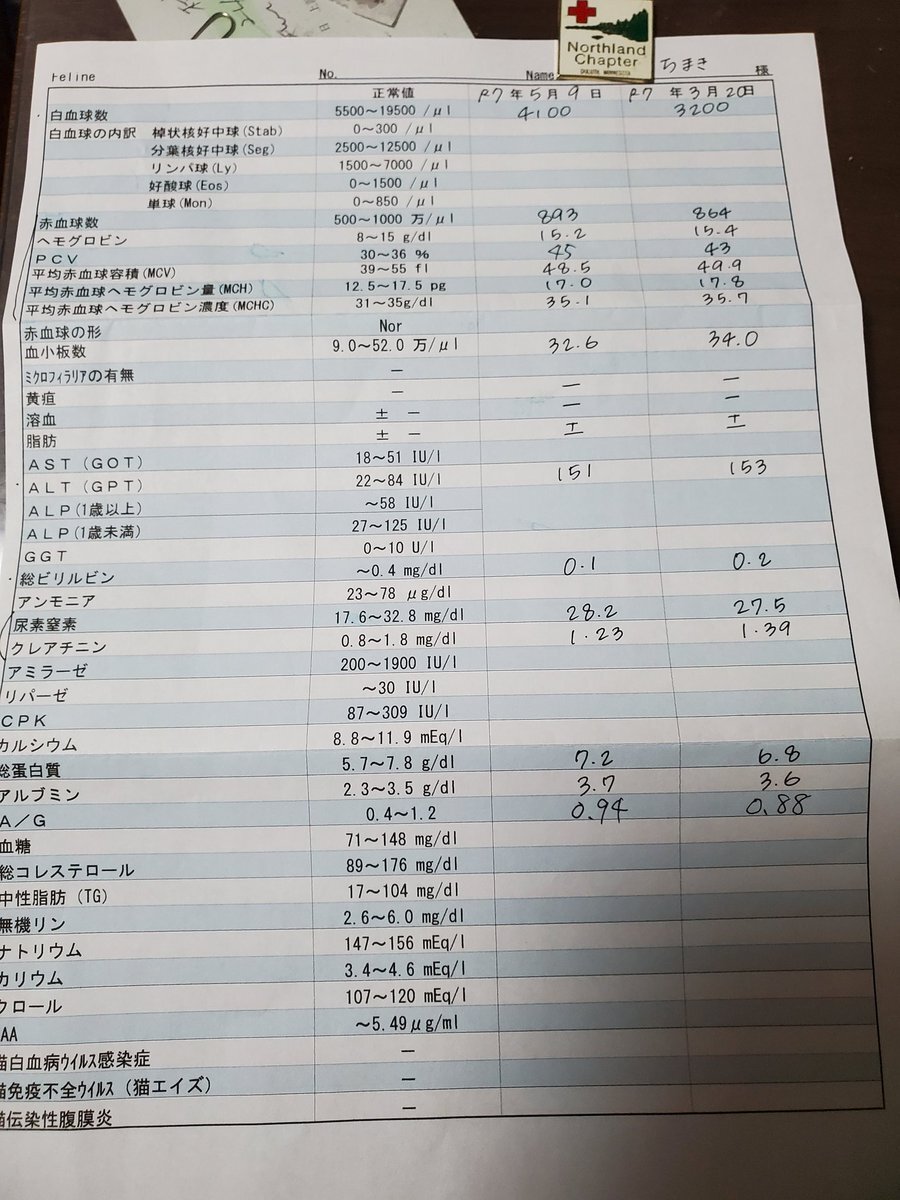 Northland
Chapter
DULUTH MINNESOTA
Feline No. Name ちまき 様
正常値 R7年5月9日 R7年3月20日
白血球数 5500～19500 /μl 4100 3200
白血球の内訳 桿状核好中球(Stab) 0～300 /μl
分葉核好中球(Seg) 2500～12500 /μl
リンパ球(Ly) 1500～7000 /μl
好酸球(Eos) 0～1500 /μl
単球(Mon) 0～850 /μl
赤血球数 500～1000 万/μl 893 864
ヘモグロビン 8～15 g/dl 15.2 15.4
PCV 30～36 % 45 43
平均赤血球容積(MCV) 39～55 fl 48.5 49.9
平均赤血球ヘモグロビン量(MCH) 12.5～17.5 pg 17.0 17.8
平均赤血球ヘモグロビン濃度(MCHC) 31～35g/dl 35.1 35.7
赤血球の形 Nor
血小板数 9.0～52.0 万/μl 32.6 34.0
ミクロフィラリアの有無 －
黄疸 － － －
溶血 ± － － －
脂肪 ± － ± ±
AST(GOT) 18～51 IU/l
ALT(GPT) 22～84 IU/l 151 153
ALP(1歳以上) ～58 IU/l
ALP(1歳未満) 27～125 IU/l
GGT 0～10 U/l
総ビリルビン ～0.4 mg/dl 0.1 0.2
アンモニア 23～78 μg/dl
尿素窒素 17.6～32.8 mg/dl 28.2 27.5
クレアチニン 0.8～1.8 mg/dl 1.23 1.39
アミラーゼ 200～1900 IU/l
リパーゼ ～30 IU/l
CPK 87～309 IU/l
カルシウム 8.8～11.9 mEq/l
総蛋白質 5.7～7.8 g/dl 7.2 6.8
アルブミン 2.3～3.5 g/dl 3.7 3.6
A／G 0.4～1.2 0.94 0.88
血糖 71～148 mg/dl
総コレステロール 89～176 mg/dl
中性脂肪 (TG) 17～104 mg/dl
無機リン 2.6～6.0 mg/dl
ナトリウム 147～156 mEq/l
カリウム 3.4～4.6 mEq/l
クロール 107～120 mEq/l
AA ～5.49μg/ml
猫白血病ウイルス感染症 －
猫免疫不全ウイルス (猫エイズ) －
猫伝染性腹膜炎 －